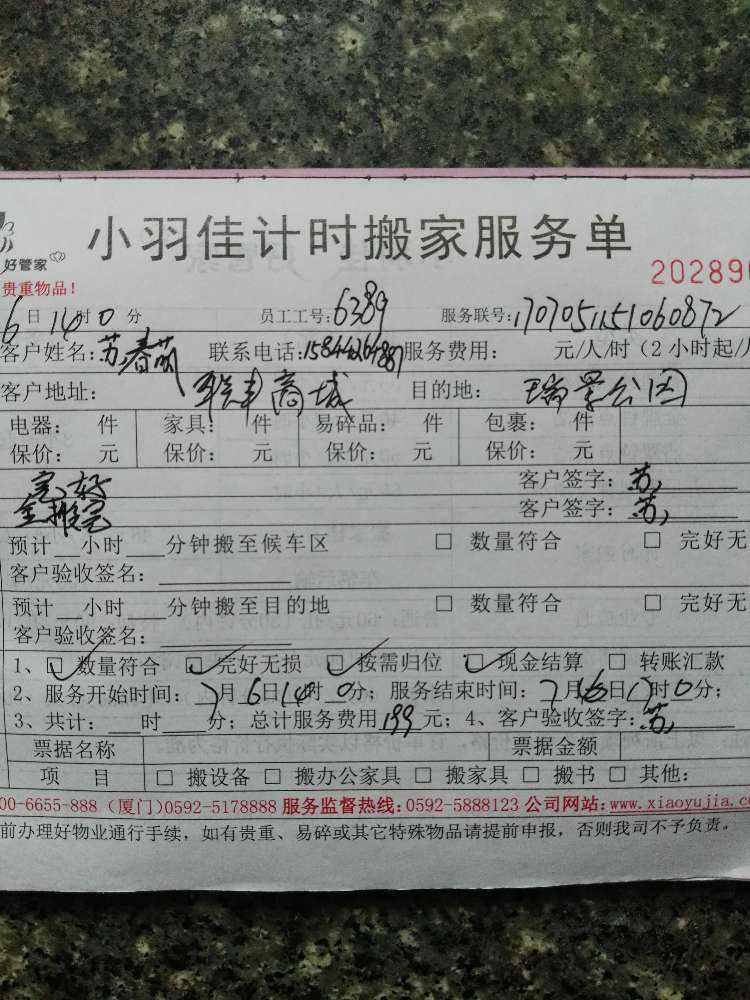 小羽佳计时搬家服务单
好管家
贵重物品！
20289
6日14时0分 员工工号：6389 服务联号：1707051151060872
客户姓名：苏春 联系电话： 服务费用： 元/人/时（2小时起/
客户地址： 联丰商城 目的地： 瑞景公园
电器： 件 家具： 件 易碎品： 件 包裹： 件
保价： 元 保价： 元 保价： 元 保价： 元
完好 客户签字：苏
全搬完 客户签字：苏
预计__小时___分钟搬至候车区 □ 数量符合 □ 完好无
客户验收签名：
预计 小时 分钟搬至目的地 □ 数量符合 □ 完好无
客户验收签名：
1、☑数量符合 ☑完好无损 ☑按需归位 ☑现金结算 □ 转账汇款
2、服务开始时间：7月6日14时0分；服务结束时间：7月6日17时0分；
3、共计：___时___分；总计服务费用199元；4、客户验收签字：苏
票据名称 票据金额
项 目 □ 搬设备 □ 搬办公家具 □ 搬家具 □ 搬书 □ 其他：
00-6655-888（厦门）0592-5178888 服务监督热线：0592-5888123 公司网站：www.xiaoyujia.c
前办理好物业通行手续，如有贵重、易碎或其它特殊物品请提前申报，否则我司不予负责。